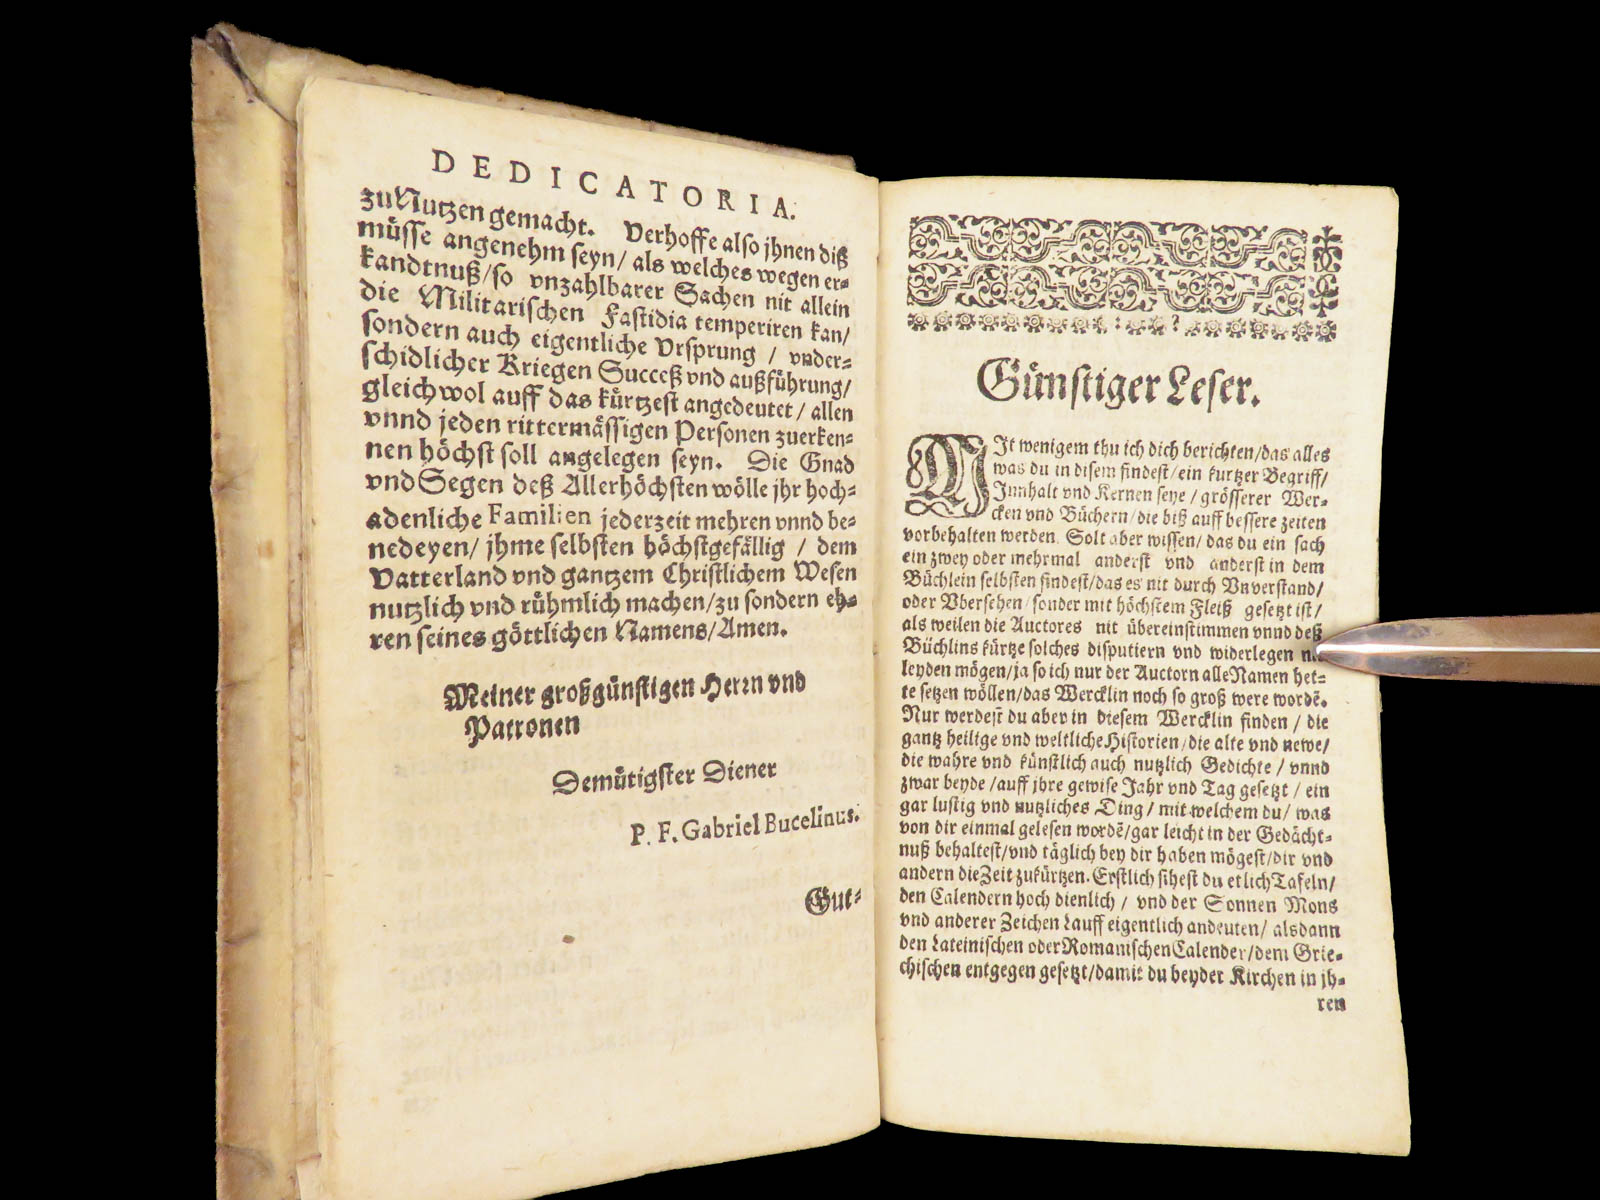 DEDICATORIA.
zu Nutzen gemacht. Verhoffe also jhnen diß
müsse angenehm seyn/ als welches wegen er-
kandtnuß/so vnzahlbarer Sachen nit allein
die Militarischen Fastidia temperiren kan/
sondern auch eigentliche Vrsprung / vnder-
schidlicher Kriegen Succeß vnd außführung/
gleichwol auff das kürtzest angedeutet / allen
vnnd jeden rittermässigen Personen zuerken-
nen höchst soll angelegen seyn. Die Gnad
vnd Segen deß Allerhöchsten wölle jhr hoch-
adenliche Familien jederzeit mehren vnnd be-
nedeyen/ jhme selbsten höchstgefällig / dem
Vatterland vnd gantzem Christlichem Wesen
nutzlich vnd rühmlich machen/zu sondern eh-
ren seines göttlichen Namens/Amen.
Meiner großgünstigen Herrn vnd
Patronen
Demütigster Diener
P. F. Gabriel Bucelinus.
Gut-
Günstiger Leser.
MIt wenigem thu ich dich berichten/das alles
was du in disem findest/ein kurtzer Begriff/
Innhalt vnd Kernen seye / grösserer Wer-
cken vnd Büchern/die biß auff bessere zeiten
vorbehalten werden. Solt aber wissen/das du ein sach
ein zwey oder mehrmal anderst vnd anderst in dem
Büchlein selbsten findest/das es nit durch Vnverstand/
oder Vbersehen/sonder mit höchstem Fleiß gesetzt ist/
als weilen die Auctores nit übereinstimmen vnnd deß
Büchlins kürtze solches disputiern vnd widerlegen
leyden mögen/ja so ich nur der Auctorn alle Namen het-
te setzen wöllen/das Wercklin noch so groß were wordẽ.
Nur werdest du aber in diesem Wercklin finden / die
gantz heilige vnd weltliche Historien/die alte vnd newe/
die wahre vnd künstlich auch nutzlich Gedichte / vnnd
zwar beyde /auff jhre gewise Jahr vnd Tag gesetzt / ein
gar lustig vnd nutzliches Ding / mit welchem du/ was
von dir einmal gelesen wordẽ/gar leicht in der Gedächt-
nuß behaltest/vnd täglich bey dir haben mögest/dir vnd
andern die Zeit zukürtzen. Erstlich sihest du etlich Tafeln/
den Calendern hoch dienlich / vnd der Sonnen Mons
vnd anderer Zeichen Lauff eigentlich andeuten/ alsdann
den Lateinischen oder Romanischen Calender/dem Grie-
chischen entgegen gesetzt/damit du beyder Kirchen in jh-
ren